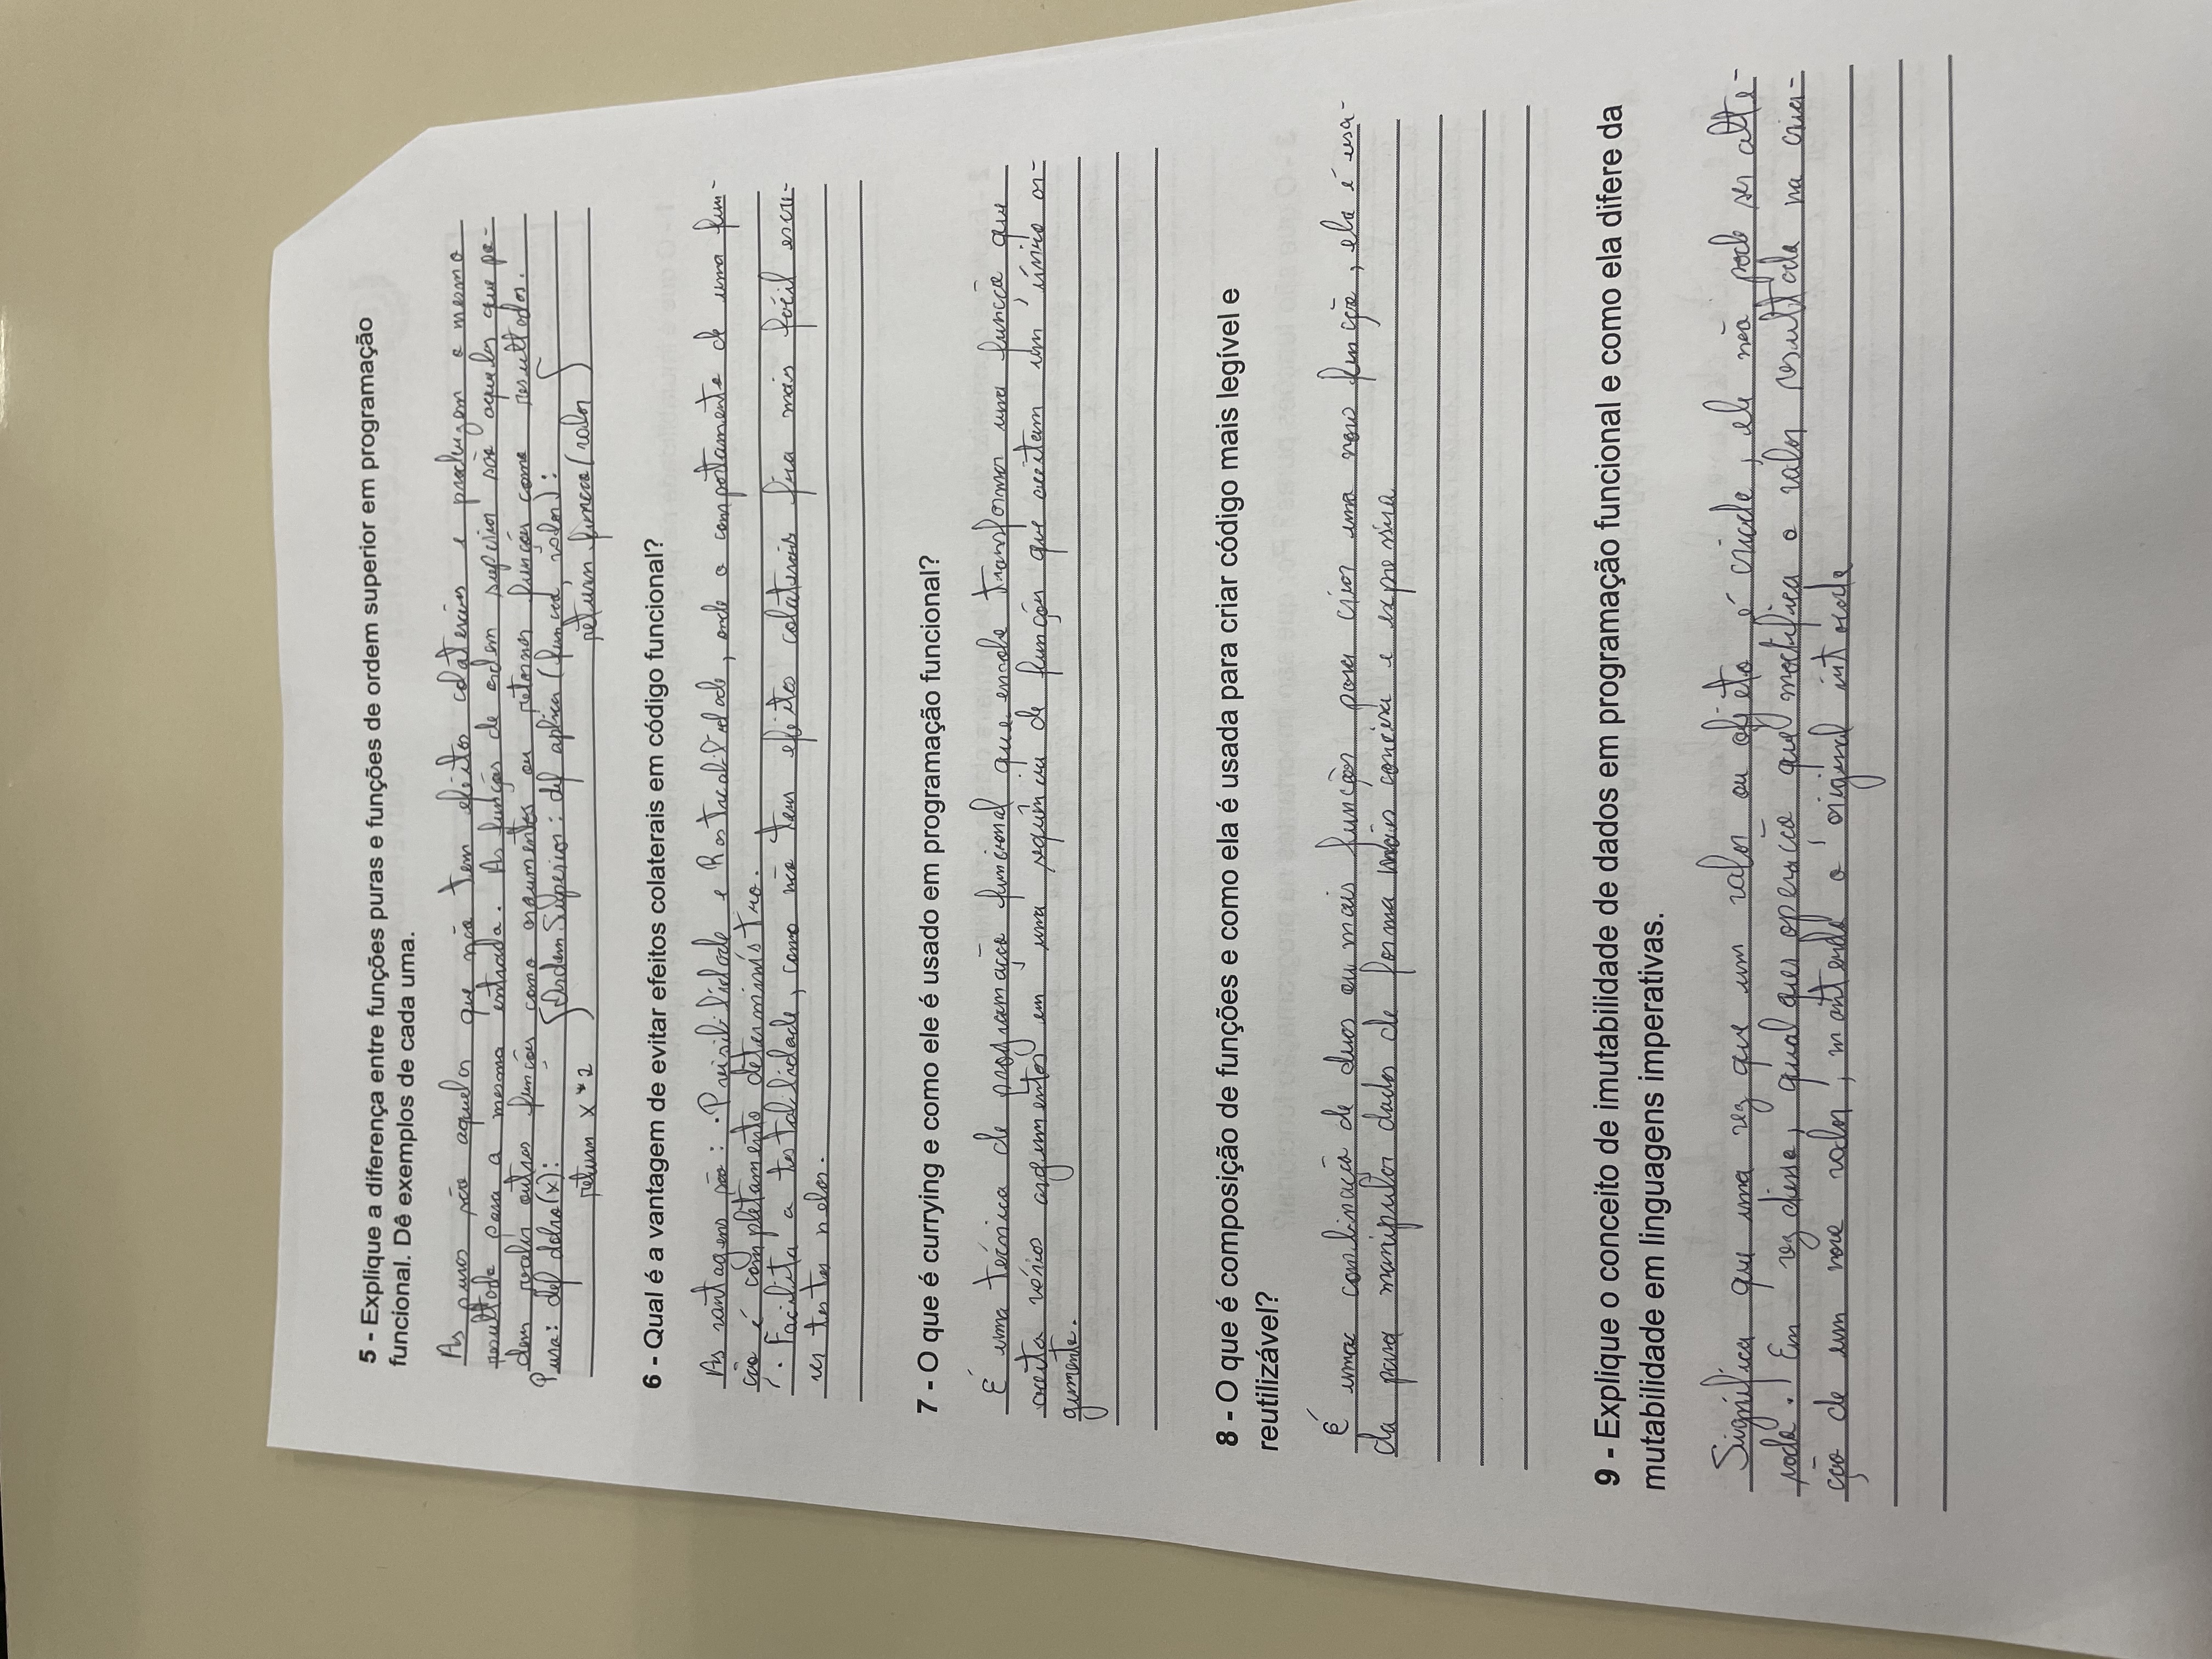 5 - Explique a diferença entre funções puras e funções de ordem superior em programação
funcional. Dê exemplos de cada uma.
As puras são aquelas que não tem efeitos colaterais e produzem o mesmo
resultado para a mesma entrada. As funções de ordem superior são aquelas que po-
dem receber outras funções como argumentos ou retornar funções como resultados.
Pura: def dobro(x):
return x*2
Ordem Superior: def aplica(funcao, valor):
return funcao(valor
6 - Qual é a vantagem de evitar efeitos colaterais em código funcional?
As vantagens são: · Previsibilidade e Rastreabilidade, onde o comportamento de uma fun-
ção é completamente
· Facilita a testabilidade, como não tem efeitos colaterais fica mais fácil escre-
ver testes nelas.
7 - O que é currying e como ele é usado em programação funcional?
É uma técnica de programação funcional que envolve transformar uma função que
aceita vários argumentos em uma sequência de funções que aceitam um único ar-
gumento.
8 - O que é composição de funções e como ela é usada para criar código mais legível e
reutilizável?
É uma combinação de duas ou mais funções para criar uma nova função, ela é usa-
da para manipular dados de forma mais concisa e expressiva
9 - Explique o conceito de imutabilidade de dados em programação funcional e como ela difere da
mutabilidade em linguagens imperativas.
Significa que uma vez que um valor ou objeto é criado, ele não pode ser alte-
rado. Em vez disso, qualquer operação que modifica o valor resultada na cria-
ção de um novo valor, mantendo o original intocado